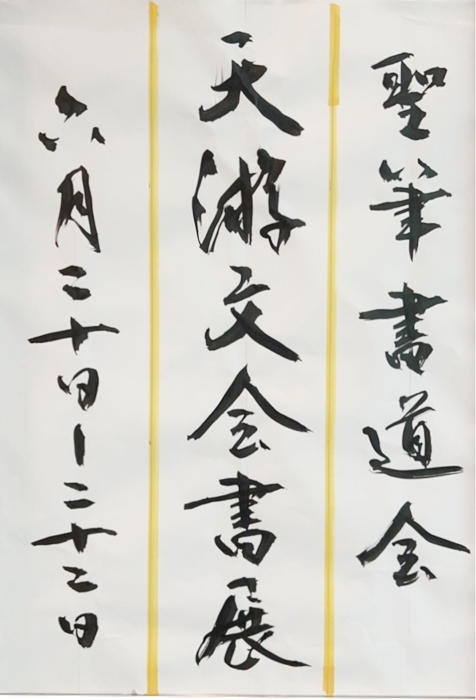 聖筆書道会
天游文会書展
六月二十日ー二十二日